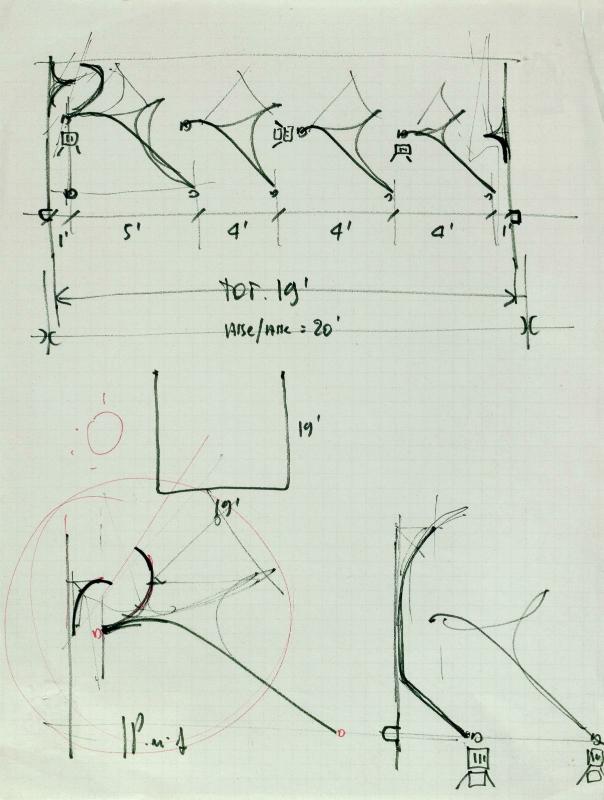 1' 5' 4' 4' 4' 1'
TOT. 19'
= 20'
19'
19'